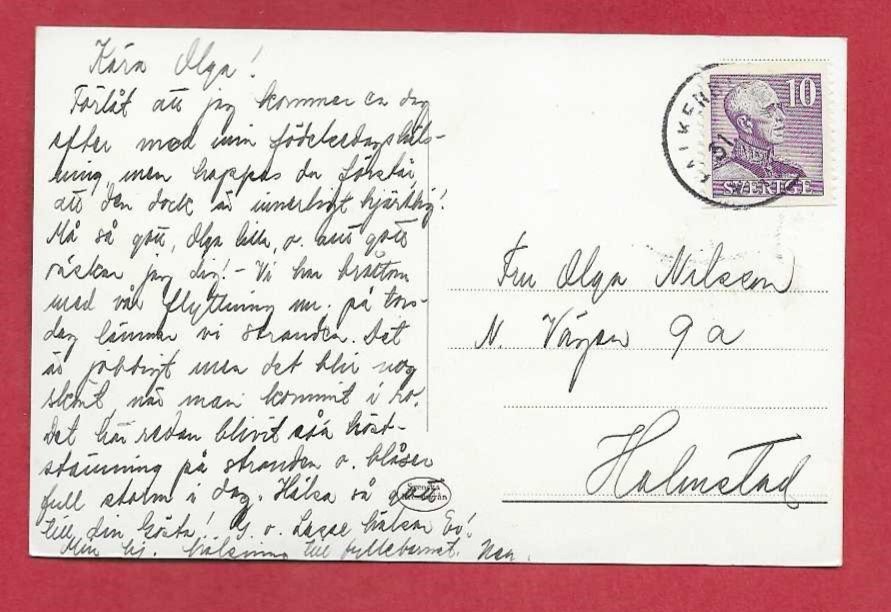 Kära Olga!
Förlåt att jag kommer en dag
efter med min födelsedagshäls-
ning, men hoppas du förstår
att den dock är innerligt hjärtlig!
Må så gott, Olga lilla, o. allt gott
önskar jag dig! - Vi har bråttom
med vår flyttning nu. på tors-
dag lämnar vi stranden. Det
är jobbigt men det blir nog
skönt, när man kommit i ro.
Det har redan blivit såå höst-
stämning på stranden o. blåser
full storm i dag. Hälsa så gott
till din Gösta! G. o. Lasse hälsar
Min hj. hälsning till fyllebarnet.
FALKENB
31
10
SVERIGE
Fru Olga Nilsson
N. Vägen 9a
Halmstad
Svenska